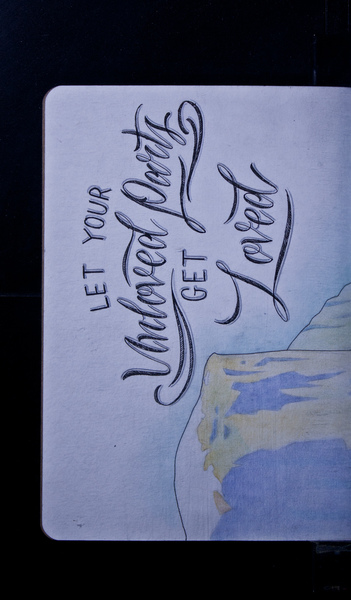 LET YOUR
Unloved Parts
GET
Loved